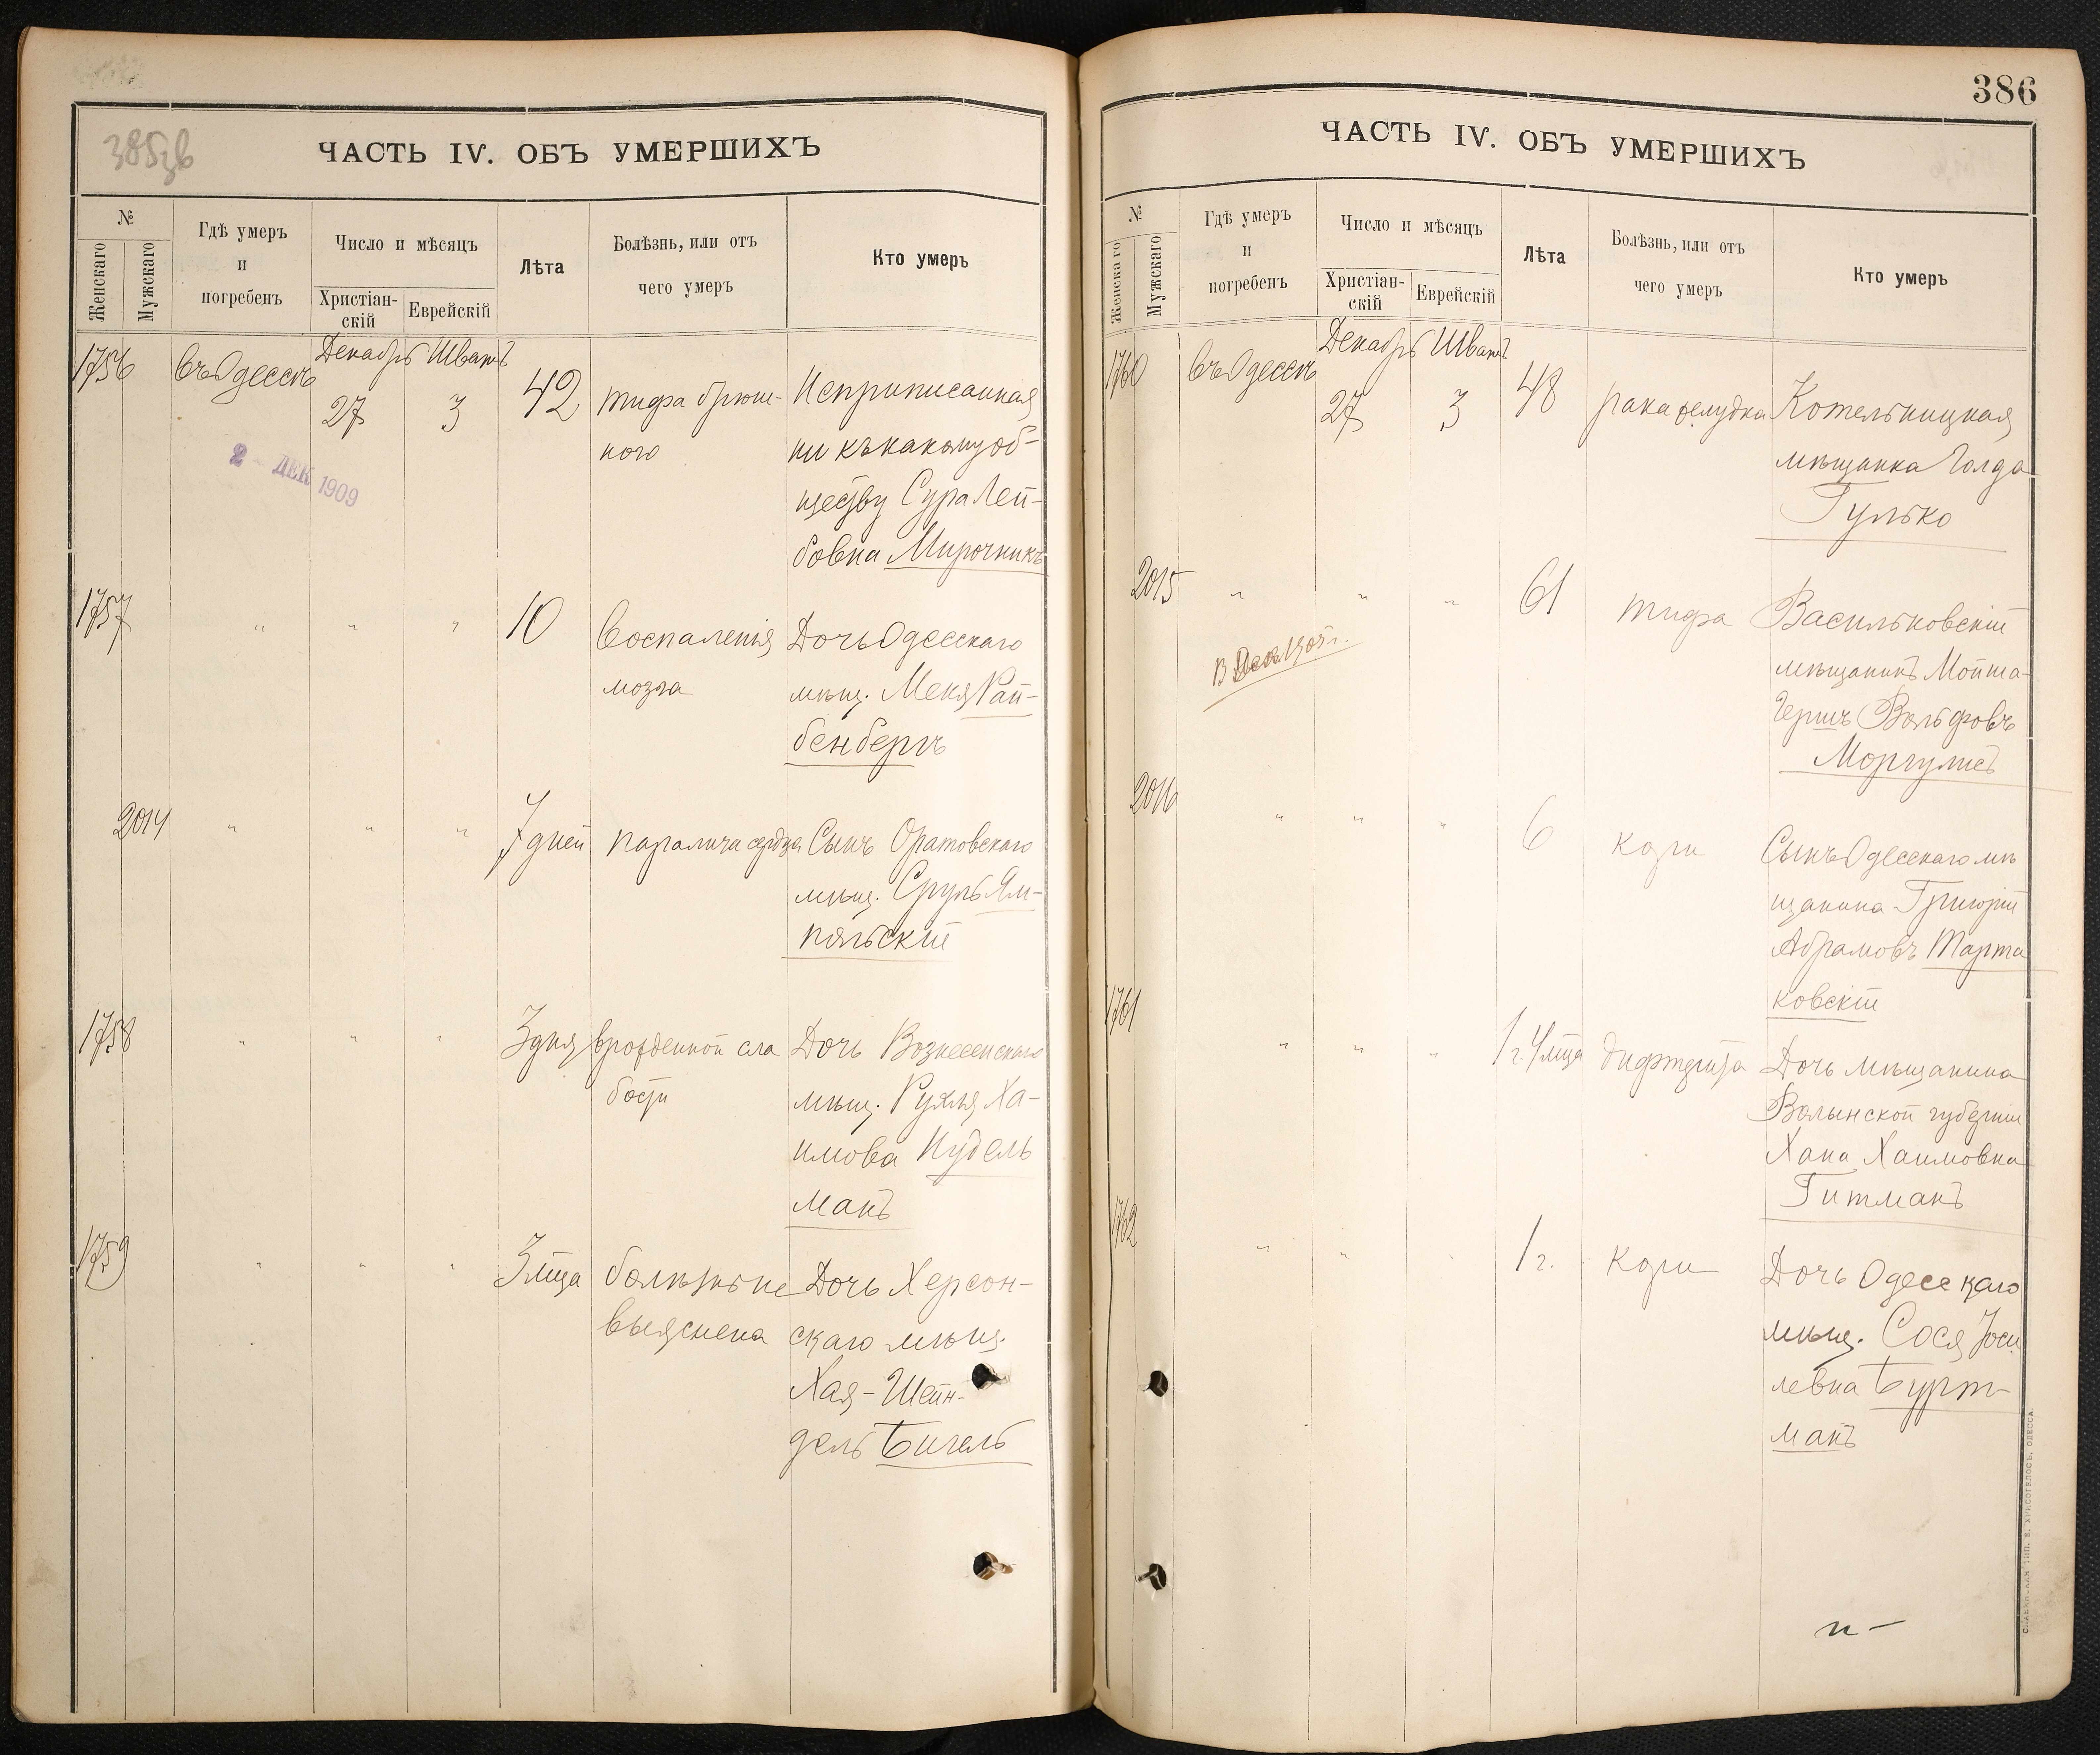 385зв
ЧАСТЬ IV. ОБЪ УМЕРШИХЪ
№
Женскаго
Мужскаго
Гдѣ умеръ
и
погребенъ
Число и мѣсяцъ
Христіан-
скій
Еврейскій
Лѣта
Болѣзнь, или отъ
чего умеръ
Кто умеръ
1756 въ Одессѣ Декабрь Шватъ
27 3 42 тифа брюш- Неприписанная
ного ни къ какому об-
2 ДЕК 1909
ществу Сура Лей-
бовна Мирочникъ
1757 " " " 10 Воспаленія Дочь Одесскаго
мозга мѣщ. Меня Рай-
бенбергъ
2014 " " " 7 дней паралича сердца Сынъ Оратовскаго
мѣщ. Сруль Ям-
польскій
1758 " " " 3 дня врожденной сла Дочь Вознесенскаго
бости мѣщ. Рухля Ха-
имова Нудель
манъ
1759 " " " 3 мца болѣзнь не Дочь Херсон-
выяснена скаго мѣщ.
Хая-Шейн-
дель Бигель
386
ЧАСТЬ IV. ОБЪ УМЕРШИХЪ
№
Женскаго
Мужскаго
Гдѣ умеръ
и
погребенъ
Число и мѣсяцъ
Христіан-
скій
Еврейскій
Лѣта
Болѣзнь, или отъ
чего умеръ
Кто умеръ
1760 въ Одессѣ Декабрь Шватъ
27 3 48 рака желудка Котельницкая
мѣщанка Голда
Гулько
2015 " " " 61 тифа Васильковскій
мѣщанинъ Мойша-
Гершъ Вольфовъ
Моргулисъ
2016 " " " 6 кори Сынъ Одесскаго мѣ
щанина Григорій
Абрамовъ Марта
ковскій
1761 " " " 1 г. 4 мца дифтерита Дочь мѣщанина
Волынской губерніи
Хана Хаимовна
Гитманъ
1762 " " 1 г. кори Дочь Одесскаго
мѣщ. Сося Іоси
левна Бурт-
манъ